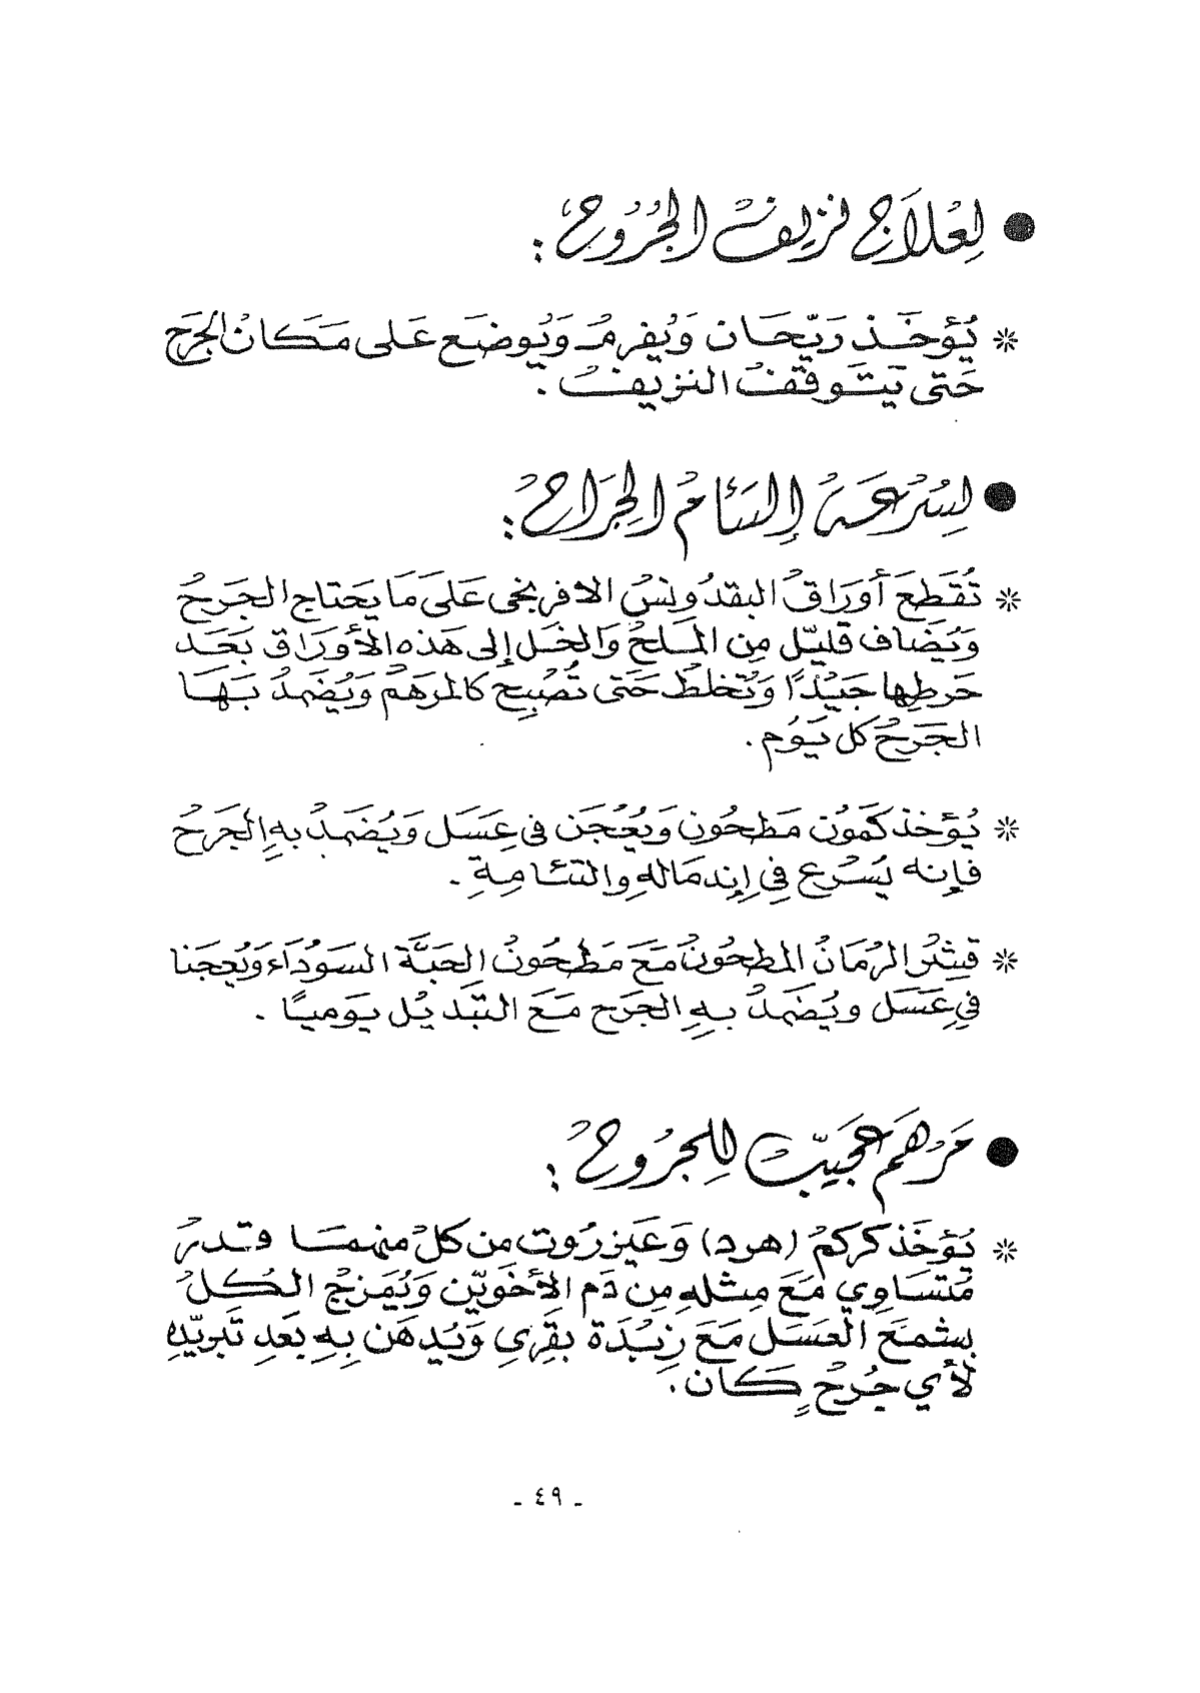 ● لِعْلَاجِ نزيفْ الجُرُوحْ :
* يُؤخَذ رَيّحَان وَيُفرمُ وَيُوضَع عَلى مَكَانْ الجَرح
حَتى يَتَوقفْ النزيفْ .
● لِسُرْعَة إلتئامْ الجِرَاحْ :
* تُقَطعَ أورَاقُ البقدُونسْ الافريخى عَلَى مَا يَحتاج الجَرحُ
وَيُضَاف قليّل مِن المَلحْ وَالخَل إلى هَذه الأورَاق بَعَد
خرطِها جَيْدًا وَتُخلطْ حَتى تُصْبح كالمرهَمْ وَيُضَمدُ بَهَا
الجَرحُ كل يَوُم .
* يُؤخذ كمَوُن مَطحُون وَيُعُجَن فى عِسَل وَيُضَمدُ بهِ الجَرحُ
فإنه يُسْرع فِى إندمَالهِ والتئامِةِ .
* قشِرُ الرُمَانُ المطحُونُ مَعَ مَطحُونُ الحَبَّة السَوُدَاء وَيُعجَنا
فِي عَسَل ويُضَمدُ بهِ الجَرح مَعَ التبَديُل يَوميًا .
● مَرْهَم عَجَيبّ لِلجرُوحْ :
* يُؤخَذ كركمُ (هرد) وَعَنزرُوت من كلْ منهمَا قدرُ
مُتسَاوِي مَعَ مِثلهِ مِن دَم الأخَويّن وَيُمَزجُ الكُلُ
بشمعَ العَسَل مَعَ زِبُدَة بقَرِي وَيُدهَن بهِ بَعَدِ تَبريّدِه
لأي جُرحٍ كَان .
- ٤٩ -